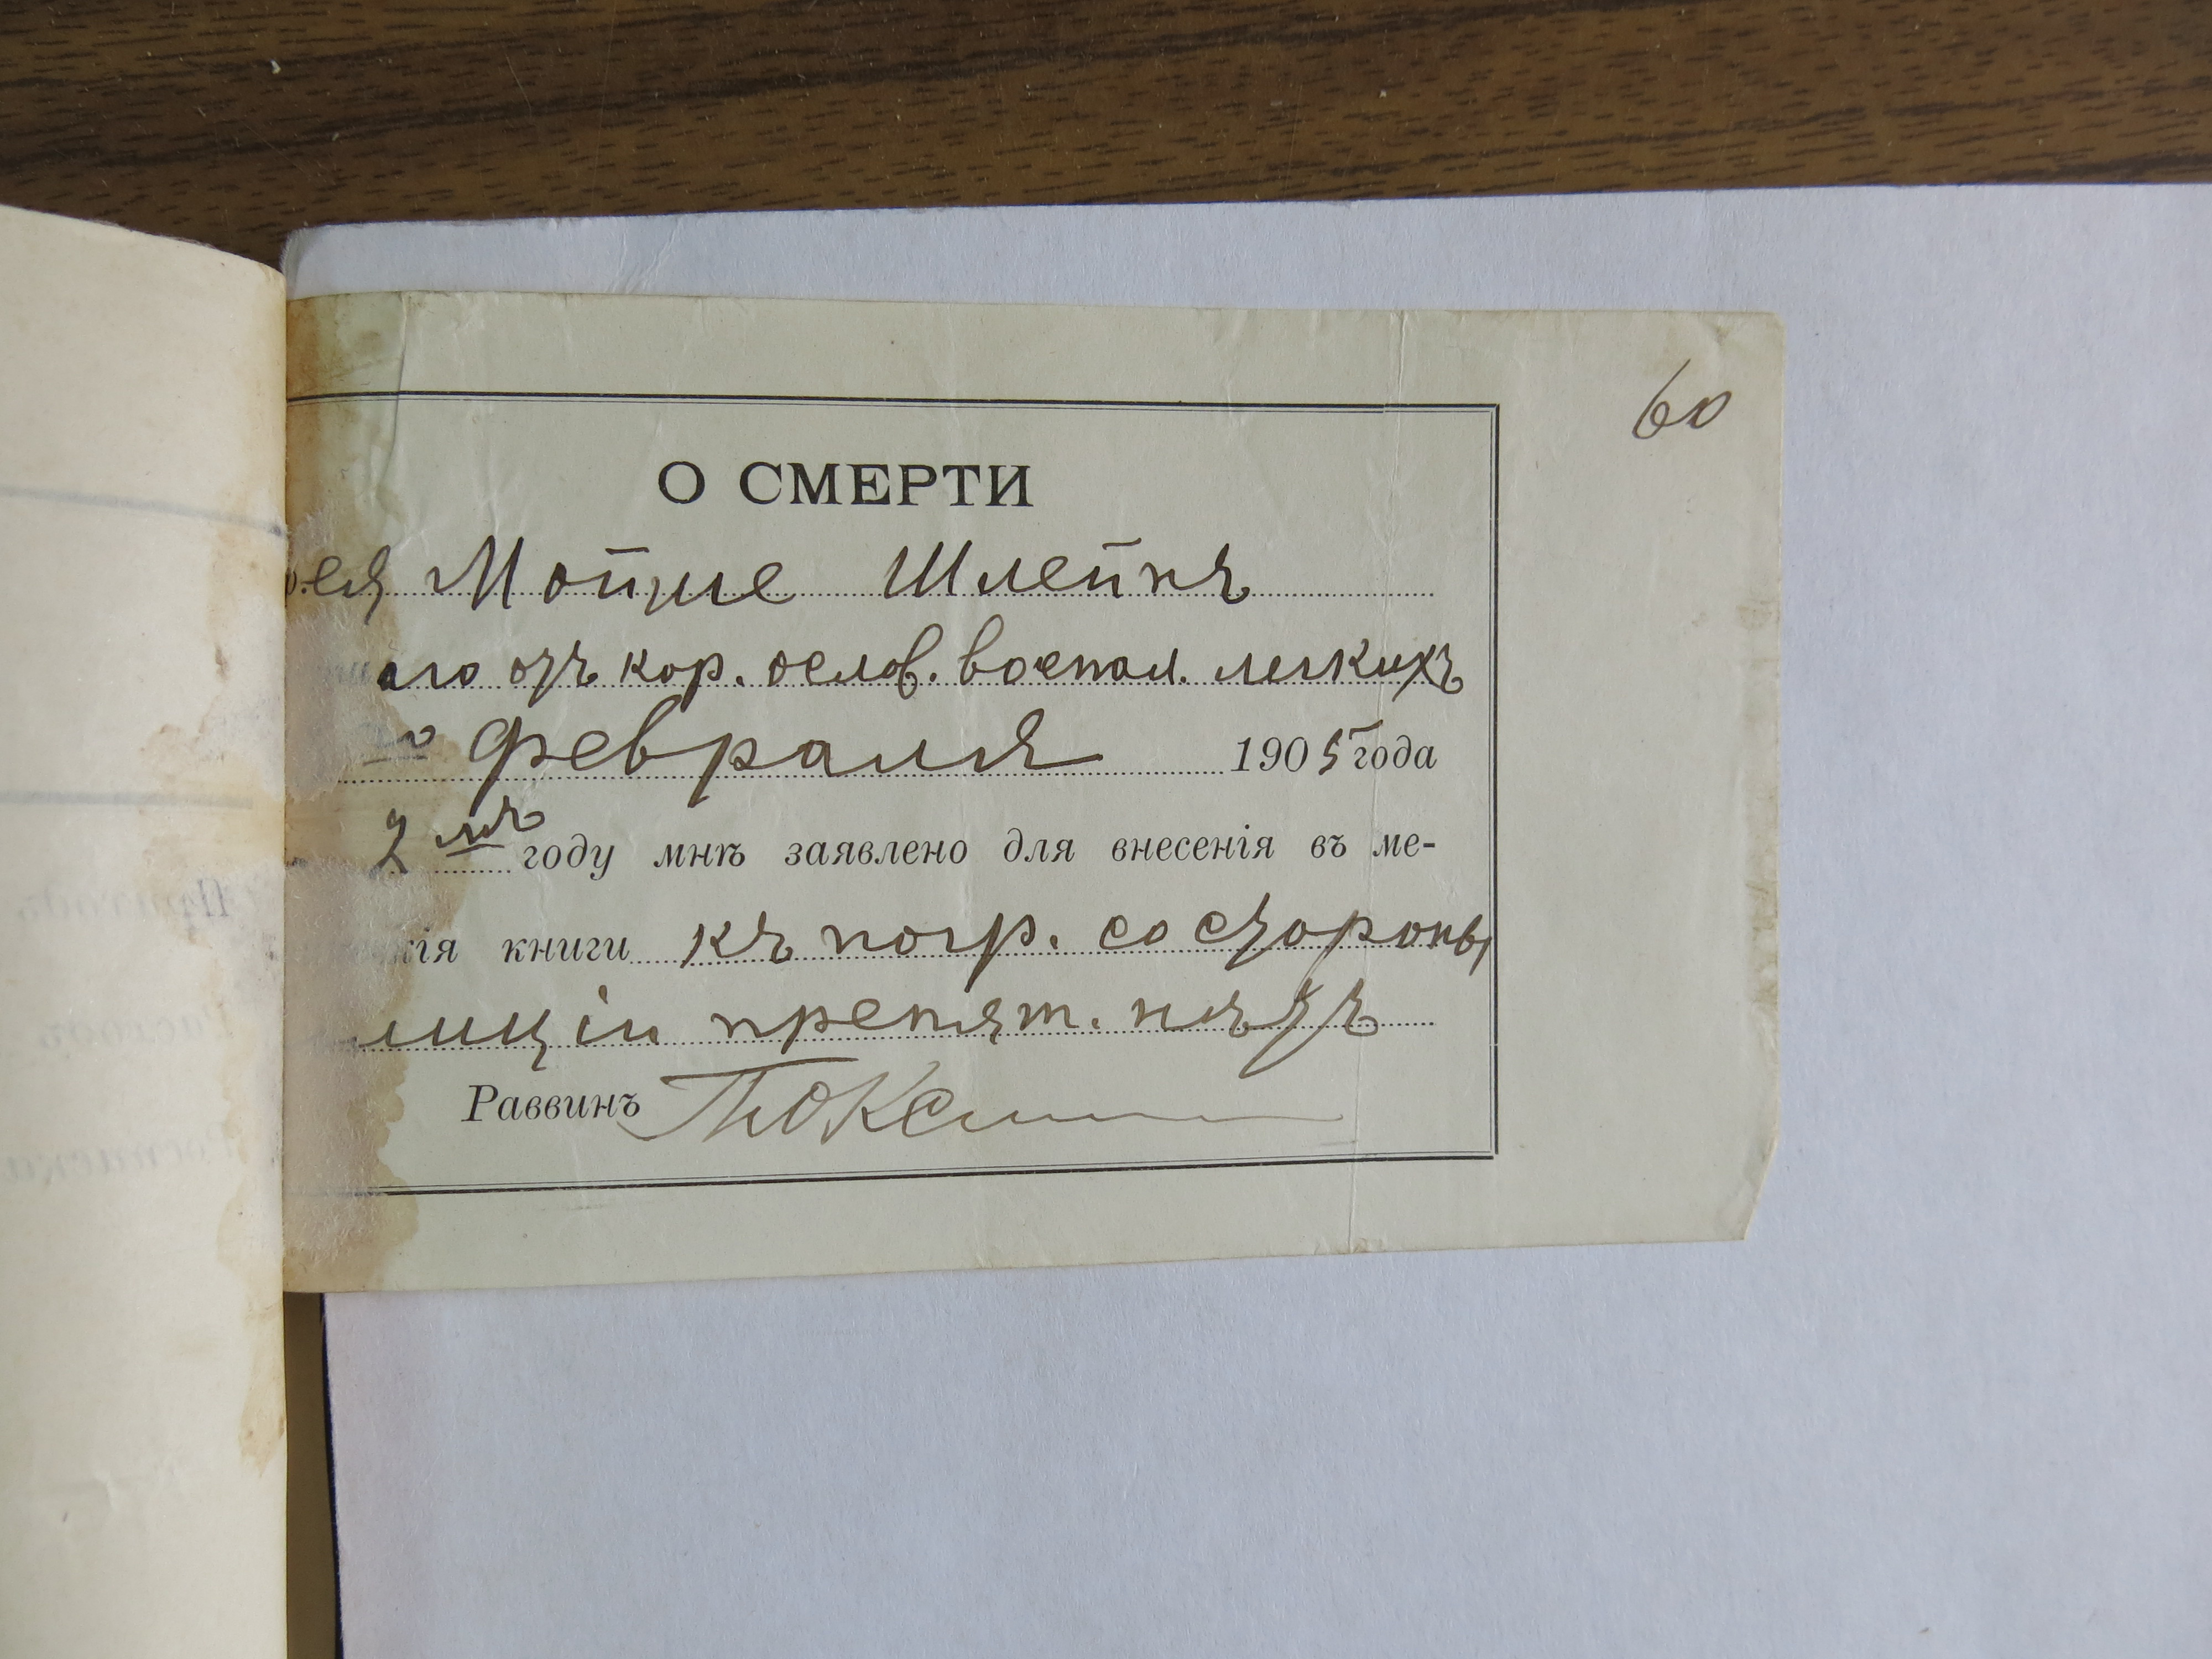 60
О СМЕРТИ
Мойше Шлейнъ
аго отъ кор. ослов. воспал. легкихъ
го Февраля 1905 года
2 мъ году мнѣ заявлено для внесенія въ ме-
кія книги къ погр. со стороны
лиціи препят. нѣтъ
Раввинъ